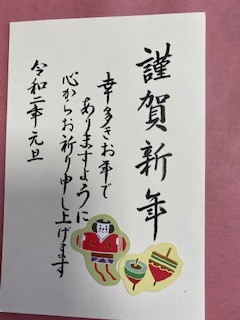 謹賀新年
幸多きお年で
ありますように
心からお祈り申し上げます
令和二年元旦